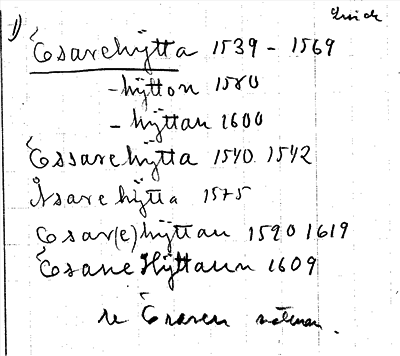 1)
Ësarehÿtta 1539 - 1569
- hÿtton 1580
- hÿttan 1600
Ëssarehÿtta 1540. 1542
Åsarehÿtta 1575
Esar(e)hÿttan 1590 1619
Ësane Hÿttann 1609
se Ësaren